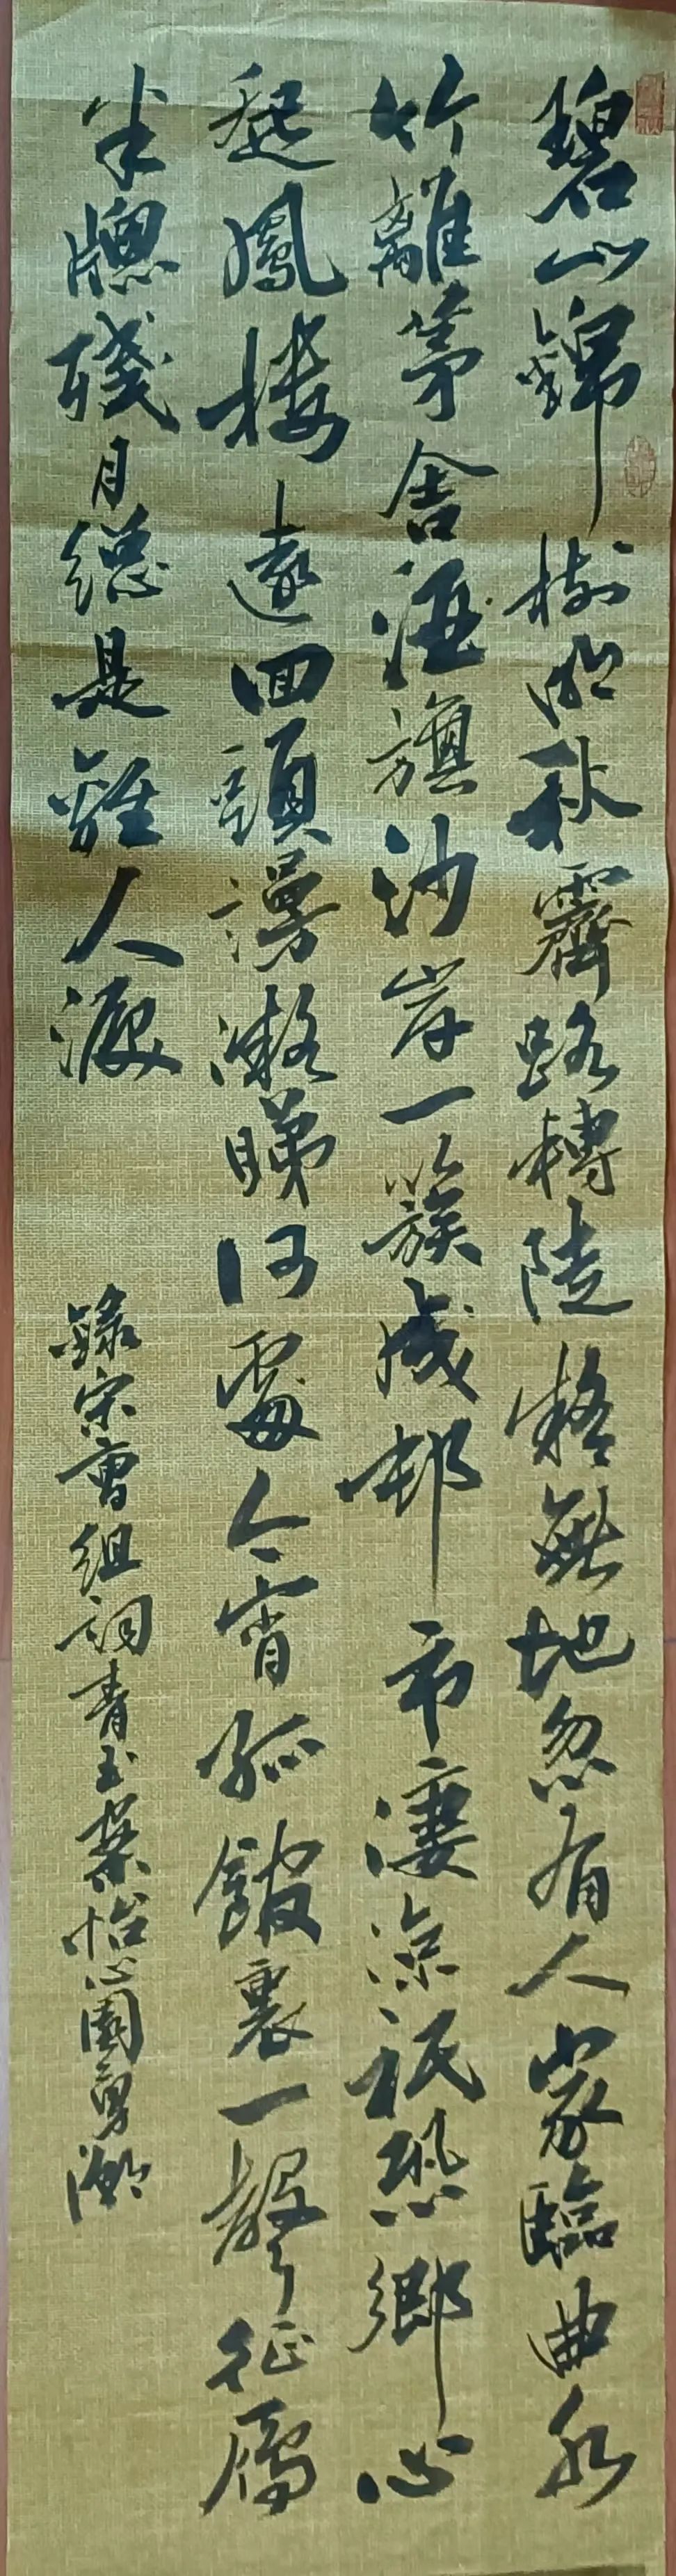 碧山錦樹明秋霽路轉陡疑無地忽有人家臨曲水
竹離茅舍酒旗沙岸一簇成邨市淒涼祇恐鄉心
起鳳樓遠回頭謾凝睇何處今宵孤館裏一聲征鴈
半牕殘月總是離人淚 錄宋曹組詞青玉案怡心園勇